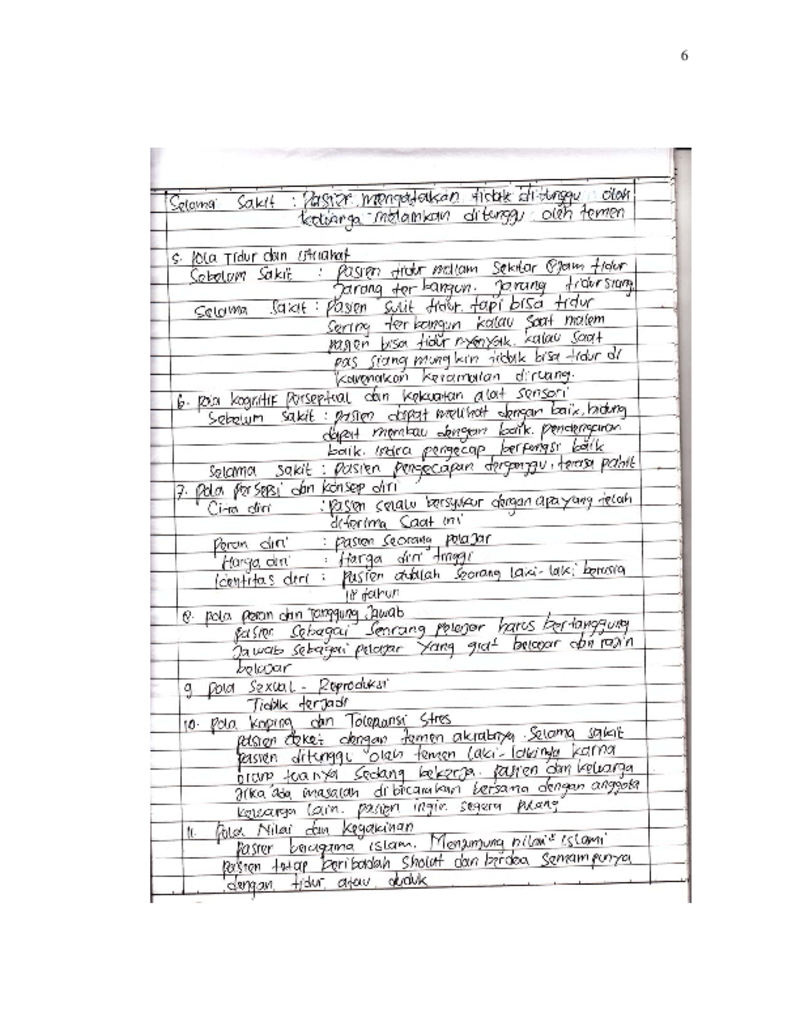 6
Selama Sakit : Pasien mengatakan tidak ditunggu oleh
keluarga melainkan ditunggu oleh temen
5. Pola Tidur dan istirahat
Sebelum Sakit : Pasien tidur malam sekitar 8 jam tidur
Jarang terbangun. Jarang tidur siang
Selama Sakit : Pasien sulit tidur tapi bisa tidur
Sering terbangun kalau saat malem
pasien bisa tidur nyenyak. kalau saat
pas siang mungkin tidak bisa tidur di
karenakan keramaian diruang.
6. Pola kognitif perseptual dan kekuatan alat sensori
Sebelum sakit : pasien dapat melihat dengan baik, hidung
dapat membau dengan baik. pendengaran
baik. indra pengecap berfungsi baik
Selama sakit : Pasien pengecapan terganggu, terasa pahit
7. Pola persepsi dan konsep diri
Citra diri : pasien selalu bersyukur dengan apa yang telah
diterima saat ini
Peran diri : pasien seorang pelajar
Harga diri : Harga diri tinggi
Identitas diri : pasien adalah seorang laki-laki berusia
18 tahun
8. pola peran dan Tanggung Jawab
pasien sebagai seorang pelajar harus bertanggung
Jawab sebagai pelajar yang giat belajar dan rajin
belajar
9 Pola Sexual - Reproduksi
Tidak terjadi
10. Pola koping dan Toleransi Stres
pasien deket dengan temen akrabnya. Selama sakit
pasien ditunggu oleh temen laki-lakinya karna
orang tuanya sedang bekerja. pasien dan keluarga
Jika ada masalah dibicarakan bersama dengan anggota
keluarga lain. pasien ingin segera pulang
11. Pola Nilai dan Keyakinan
Pasien beragama islam. Menjunjung nilai² islami
Pasien tetap beribadah sholat dan berdoa semampunya
dengan tidur atau duduk